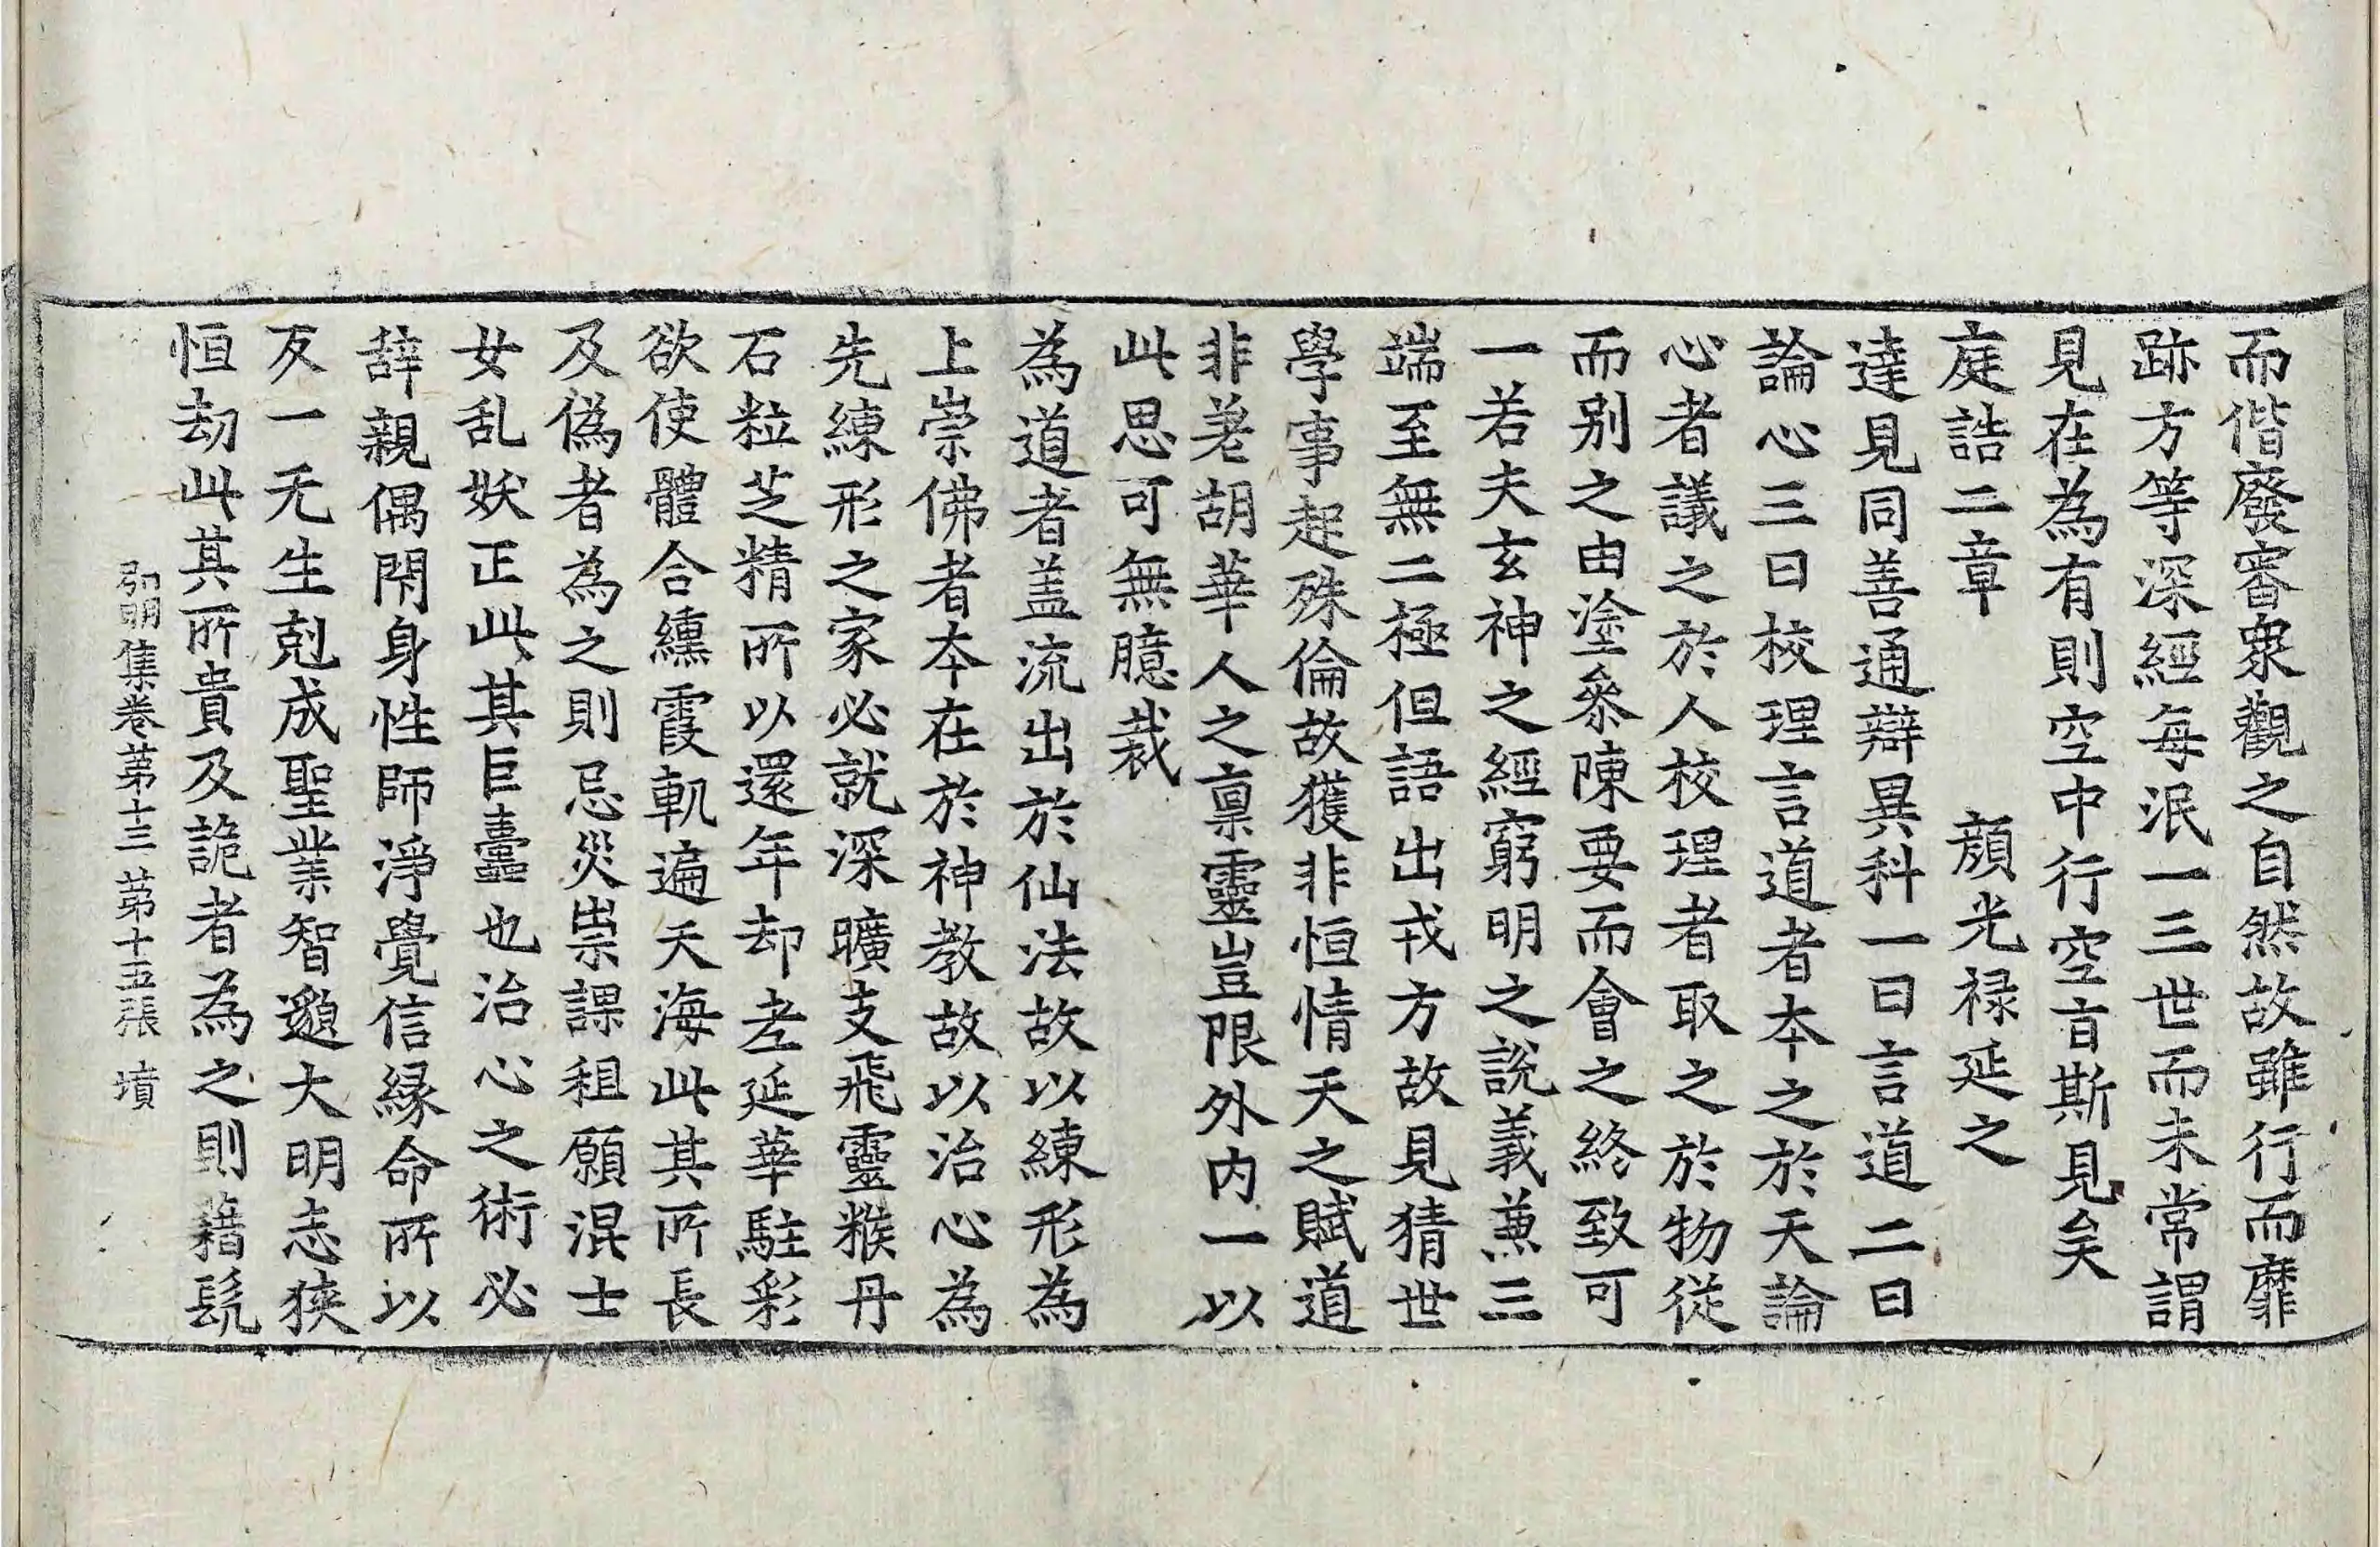 而偕廢審衆觀之自然故雖行而靡
跡方等深經每泯一三世而未常謂
見在為有則空中行空盲斯見矣
庭誥二章　　顔光禄延之
達見同善通辯異科一曰言道二曰
論心三曰校理言道者本之於天論
心者議之於人校理者取之於物從
而別之由塗叅陳要而會之終致可
一若夫玄神之經窮明之說義兼三
端至無二極但語出戎方故見猜世
學事起殊倫故獲非恒情天之賦道
非差胡華人之禀靈豈限外内一以
此思可無臆裁
為道者盖流出於仙法故以練形為
上崇佛者本在於神教故以治心為
先練形之家必就深曠友飛靈糇丹
石粒芝精所以還年却老延華駐彩
欲使體合纁霞軌遍天海此其所長
及偽者為之則忌災祟課粗願混士
女乱妖正此其巨蠹也治心之術必
辭親偶閇身性師淨覺信縁命所以
反一无生剋成聖業智邈大明志狹
恒劫此其所貴及詭者為之則藉髡
弘明集卷第十三　第十五張　墳